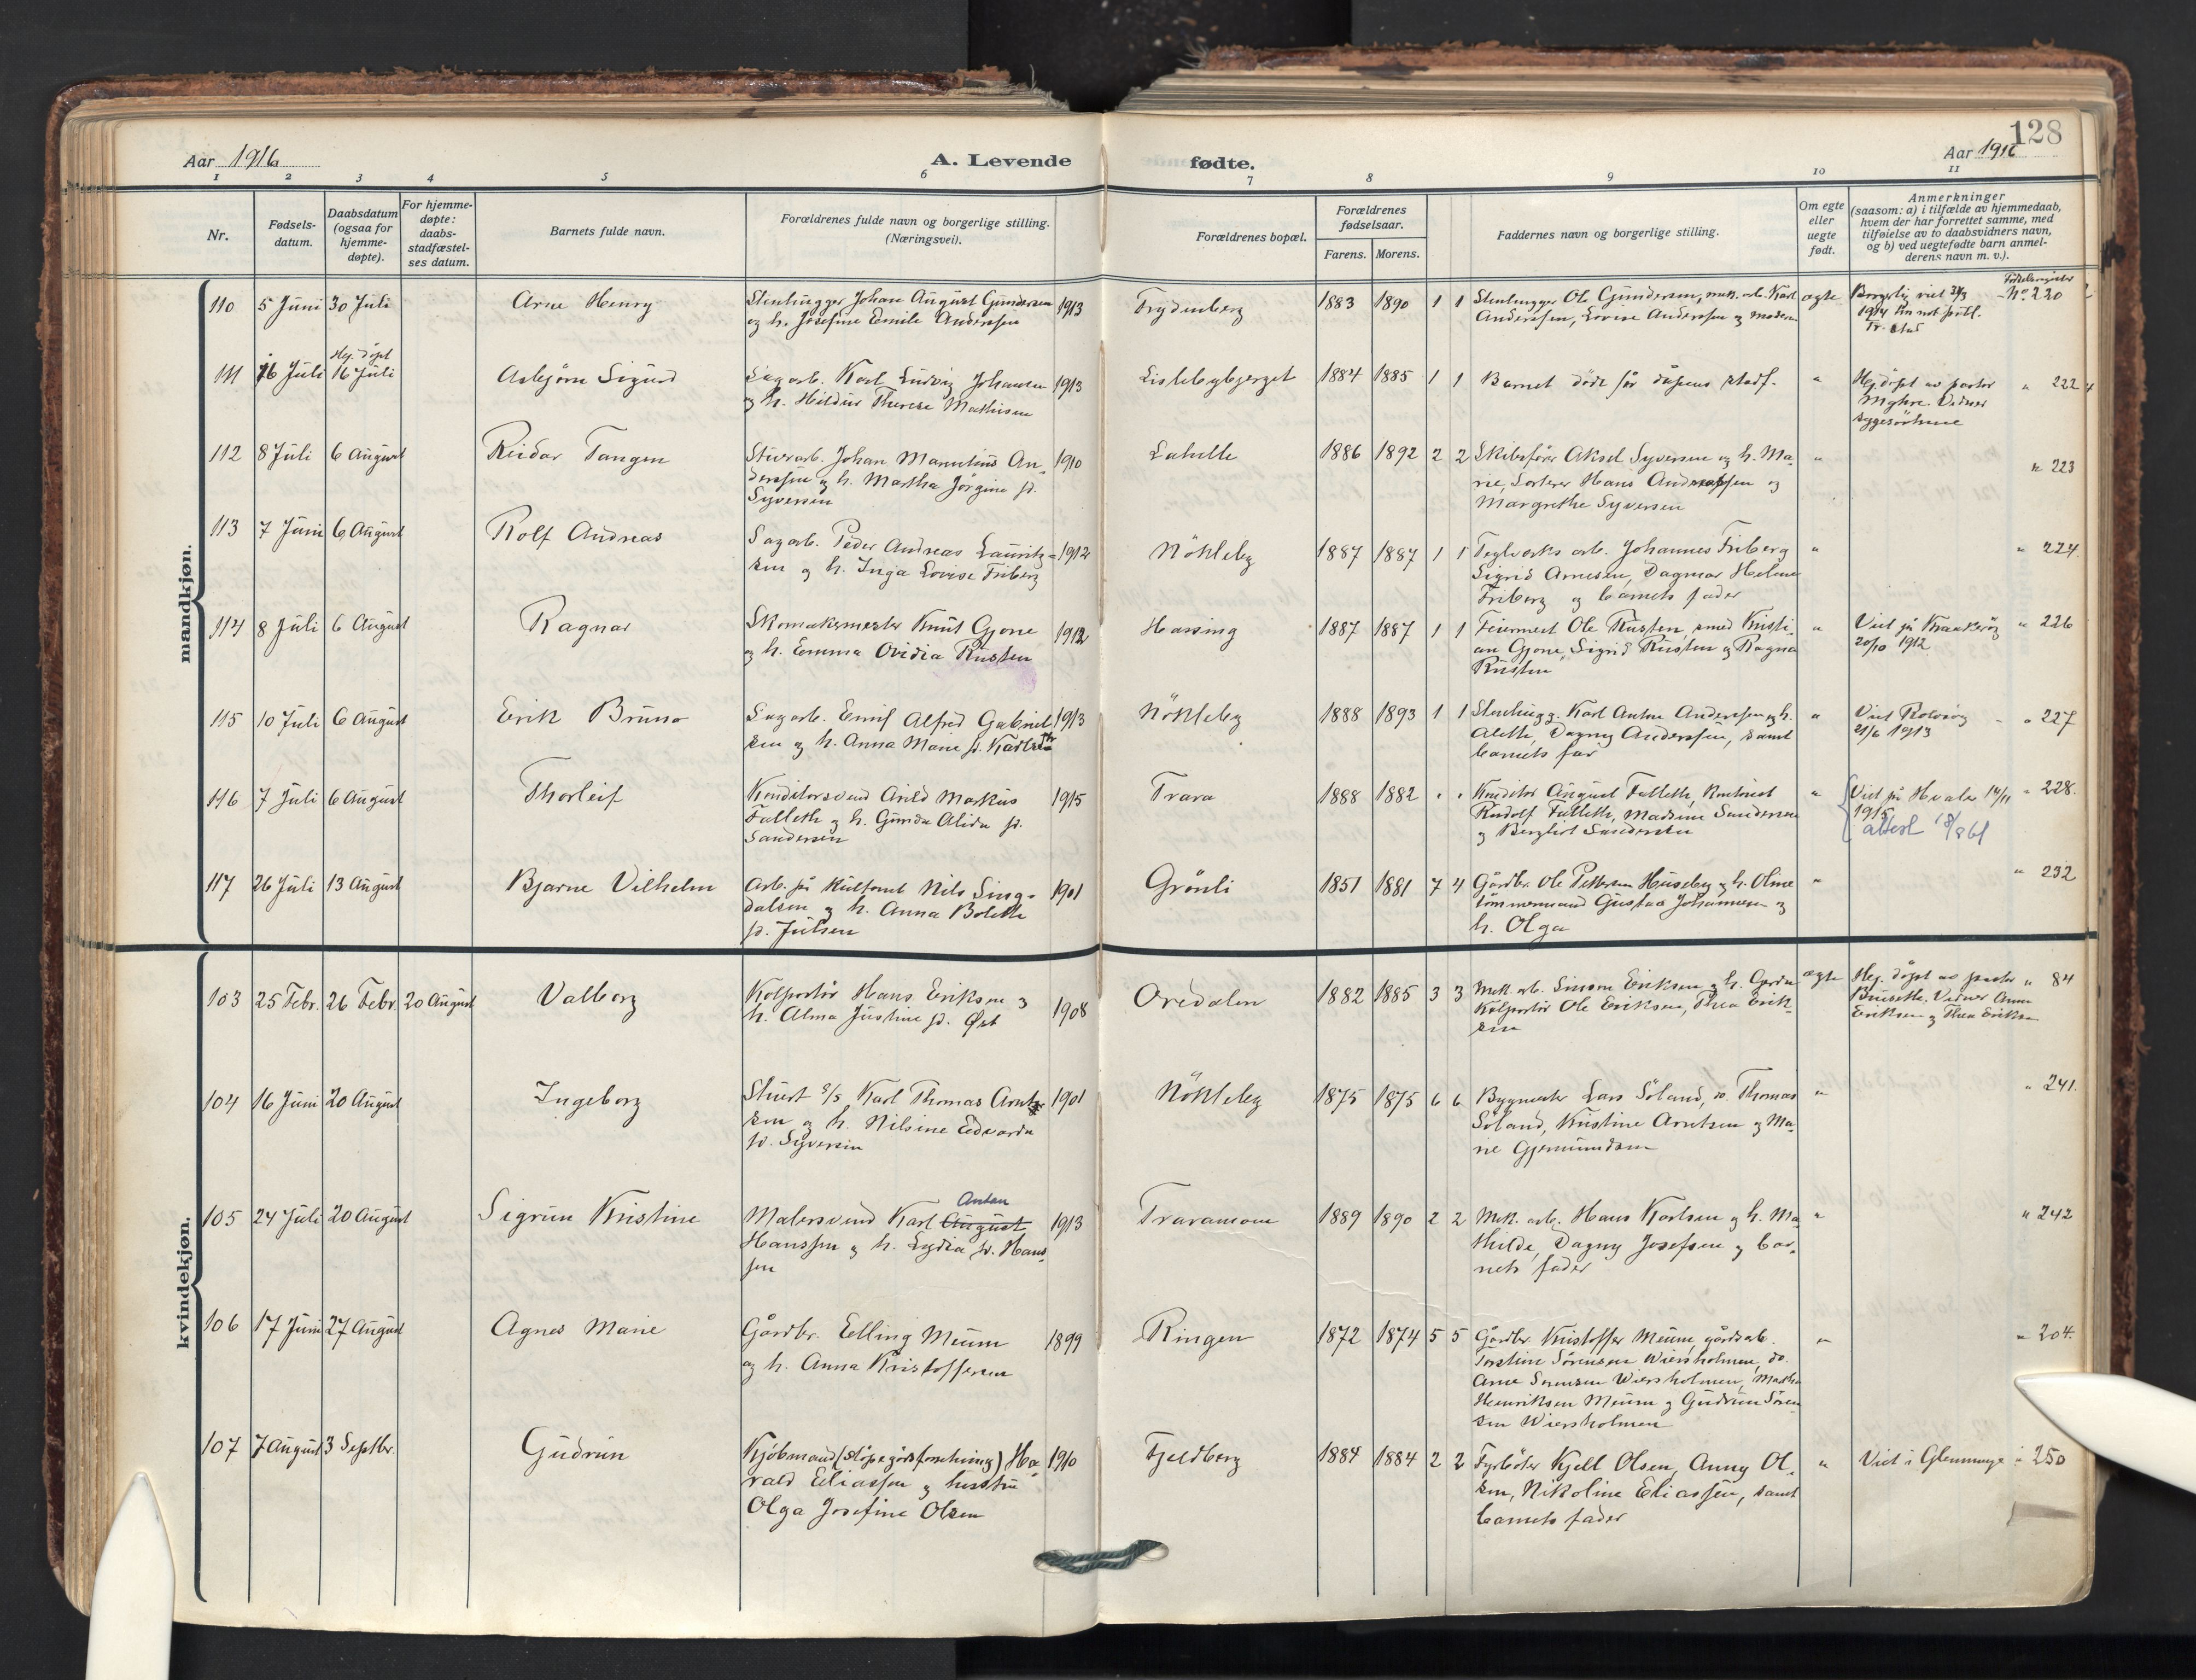 128
Aar 1916
A. Levende
fødte.
Aar 1916
1 2 3 4 5 6 7 8 9 10 11
Nr.
Fødsels-
datum.
Daabsdatum
(ogsaa for
hjemme-
døpte).
For hjemme-
døpte:
daabs-
stadfæstel-
ses datum.
Barnets fulde navn.
Forældrenes fulde navn og borgerlige stilling.
(Næringsvei).
Forældrenes bopæl.
Forældrenes
fødselsaar.
Farens. Morens.
Faddernes navn og borgerlige stilling.
Om egte
eller
uegte
født.
Anmerkninger
(saasom: a) i tilfælde av hjemmedaab,
hvem der har forrettet samme, med
tilføielse av to daabsvidners navn,
og b) ved uegtefødte barn anmel-
derens navn m. v.).
mandkjøn.
110 5 Juni 30 Juli Arne Henry
Stenhugger Johan August Gundersen
og h. Josefine Emilie Anderssen 1913
Frydenberg 1883 1890 1 1
Stenhugger Ole Gundersen, mek. arb. Karl
Anderssen, Lovise Anderssen og moderen
egte
Borgerlig viet
1914
Fr.stad
No. 220
111 16 Juli Hj. døpt 16 Juli Asbjørn Sigurd
Sagarb. Karl Ludvig Johansen
og h. Hildur Therese Mathisen 1913
Lislebybjerget 1884 1885 1 1
Barnet døde før dåpens stadf. "
Hj. døpt av pastor
Myhre. Vidner
" 222
112 8 Juli 6 August Reidar Tangen
Stuerarb. Johan Manntius An-
derssen og h. Martha Jørgine f.
Syversen 1910
Lahelle 1886 1892 2 2
Skibsfører Aksel Syversen og h. Ma-
rie, Sorterer Hans Anderssen og
Margrethe Syversen "
" 223
113 7 Juni 6 August Rolf Andreas
Sagarb. Peder Andreas Lauritz-
sen og h. Inga Lovise Friberg 1912
Nökleby 1887 1887 1 1
Teglverks arb. Johannes Friberg
Sigrid Arnesen, Dagmar Helene
Friberg og barnets fader "
" 224
114 8 Juli 6 August Ragnar
Skomakermester Knut Gjone
og h. Emma Ovidia Rusten 1912
Hassing 1887 1887 1 1
Feiermest Ole Rusten, smed Kristi-
an Gjone, Sigrid Rusten og Ragna
Rusten "
Viet på Kraakerøy
20/10 1912
" 226
115 10 Juli 6 August Erik Bruno
Sagarb. Emil Alfred Gabriel-
sen og h. Anna Marie f. Karlsen 1913
Nökleby 1888 1893 1 1
Stenhugg. Karl Anton Anderssen og h.
Alette, Dagny Anderssen, samt
barnets far "
Viet Rolvsøy
21/6 1913
" 227
116 7 Juli 6 August Thorleif
Konditorsvend Arild Markus
Falleth og h. Gunda Alida f.
Sandersen 1915
Trara 1888 1882
Konditor August Falleth,
Rudolf Falleth, Madsine Sandersen
og Bergliot Sandersen "
Viet på Hvaler 14/11
1915
attest 18/8 61
" 228.
117 26 Juli 13 August Bjarne Vilhelm
Arb. på Nils Sing-
dalsen og h. Anna Bolette
f. Julsen 1901
Grönli 1851 1881 7 4
Gårdbr. Ole Pettersen Huseby og h. Oline
tömmermand Gustav Johannesen og
h. Olga "
" 232
kvindekjøn.
103 25 Febr. 26 Febr. 20 August Valborg
Kolportör Hans Eriksen og
h. Alma Justine f. Øst 1908
Oredalen 1882 1885 3 3
Mek. arb. Simon Eriksen og h.
Kolportör Ole Eriksen, Thea Erik-
sen
egte
Hj. døpt av pastor
Vidner Anna
Eriksen og Thea Eriksen
" 84
104 16 Juni 20 August Ingeborg
Stuert Karl Thomas Arnt-
sen og h. Nilsine Edvarda
f. Syversen 1901
Nökleby 1875 1875 6 6
Bygmester Lars Söland, do. Thomas
Söland, Kristine Arntsen og Ma-
rie Gjermundsen "
" 241.
105 24 Juli 20 August Sigrun Kristine
Anton
Malersvend Karl August
Hanssen og h. Lydia f. Hans-
sen 1913
Traramoen 1889 1890 2 2
Mek. arb. Hans Karlsen og h. Ma-
thilde, Dagny Josefsen og bar-
nets fader "
" 242
106 17 Juni 27 August Agnes Marie
Gårdbr. Elling Meum
og h. Anna Kristoffersen 1899
Ringen 1872 1874 5 5
Gårdbr. Kristoffer Meum, gårdsarb.
Torstein Sörensen Wiersholmen, do.
Arne Sörensen Wiersholmen, Martha
Henriksen Meum og Gudrun Sören-
sen Wiersholmen "
" 204.
107 7 August 3 Septbr. Gudrun
Kjöbmand (støpegodsforretning) Ha-
rald Eliassen og hustru
Olga Josefine Olsen 1910
Fjeldberg 1884 1884 2 2
Fyrböter Kjell Olsen, Anny Ol-
sen, Nikoline Eliassen, samt
barnets fader "
Viet i Glemminge " 250